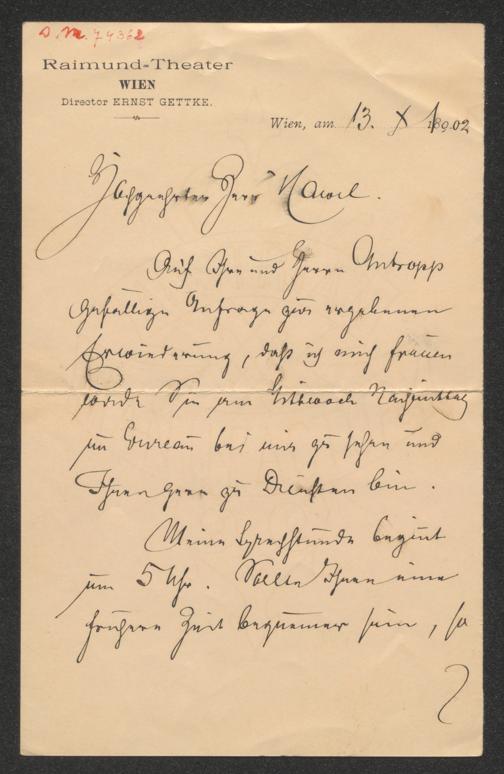 D.M. 74362
Raimund-Theater
WIEN
Director ERNST GETTKE.
Wien, am 13. X 1902
Hochgeehrter Herr Hawel.
Auf Ihre und Herrn Antropp
gefällige Anfrage zur ergebenen
Erwiederung, daß ich mich freuen
werde Sie am Mittwoch Nachmittag
im Bureau bei mir zu sehen und
Ihnen gern zu Diensten bin.
Meine Sprechstunde beginnt
um 5 Uhr. Sollte Ihnen eine
frühere Zeit bequemer sein, so